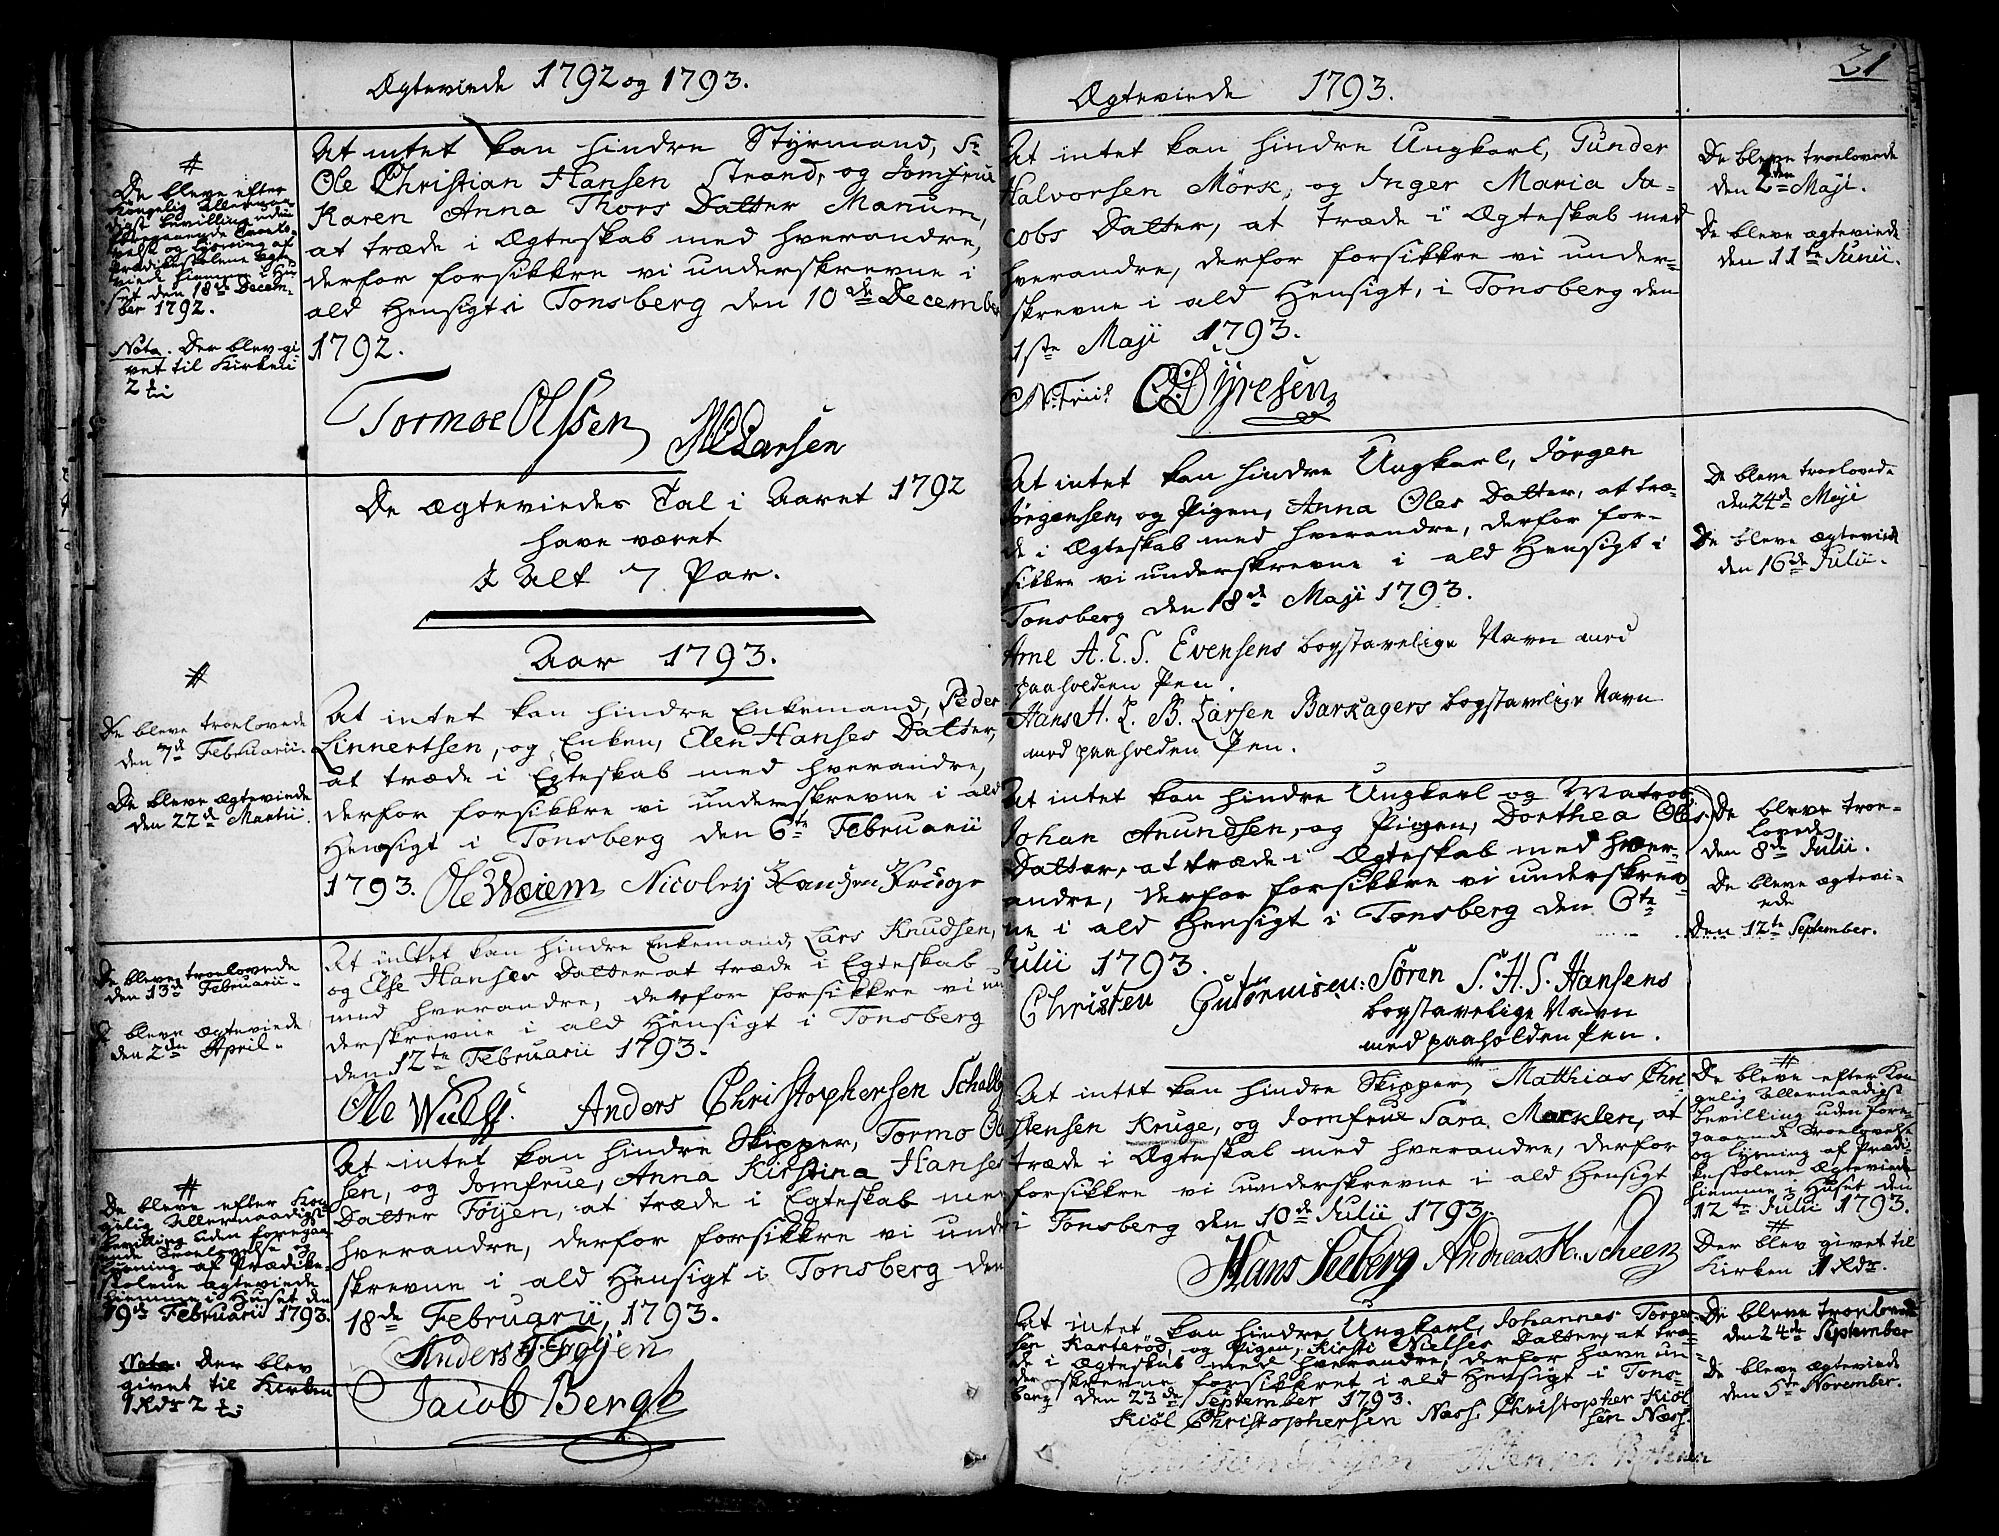 Ægteviede 1792 og 1793.
#
De bleve efter
Kongelig Allernaa-
digst bevilling uden
foregaaende Troelo-
velse og Lysning af
Prædikestolene ægte-
viede hiemme i Hu-
set den 18de Decem-
ber 1792.
Nota. Der blev gi-
vet til Kirken
2
At intet kan hindre Styrmand, Sr
Ole Christian Hansen Strand, og Jomfrue
Karen Anna Thors Datter Manum,
at træde i Ægteskab med hverandre,
derfor forsikkre vi underskrevne i
ald Hensigt i Tonsberg den 10de December
1792.
Tormoe Olssen MCLarsen
De Ægteviedes Tal i Aaret 1792
have været
I Alt 7 Par.
Aar 1793.
#
De bleve troelovede
den 7de Februarii.
De bleve ægteviede
den 22de Martii.
At intet kan hindre Enkemand, Peder
Linnertsen, og Enken, Elen Hanses Datter,
at træde i Egteskab med hverandre,
derfor forsikkre vi underskrevne i ald
Hensigt i Tonsberg den 6te Februarii
1793. Ole Weiem Nicoley Hansen Kruge
De bleve troelovede
den 13de Februarii.
De bleve ægteviede
den 2den April.
At intet kan hindre Enkemand, Lars Knudsen,
og Else Hanses Datter at træde i Egteskab
med hverandre, derfor forsikkre vi un-
derskrevne i ald Hensigt i Tonsberg
den 12te Februarii 1793.
Ole Wulff. Anders Christophersen
#
De bleve efter Kon-
gelig Allernaadigst
bevilling uden foregaa-
ende Troelovelse og
Lysning af Prædike-
stolene ægteviede
hiemme i Huset den
19de Februarii 1793.
Nota. Der blev
givet til Kirken
1 Rdr 2
At intet kan hindre Skipper, Tormo Ol-
sen, og Jomfrue, Anna Kirstina Hanses
Datter Föyen, at træde i Egteskab med
hverandre, derfor forsikkre vi under-
skrevne i ald Hensigt i Tonsberg den
18de Februarii, 1793.
Anders Föyen
Jacob Bergh
Ægteviede 1793.
21
At intet kan hindre Ungkarl, Gunder
Halvorsen Mörk, og Inger Maria Ja-
cobs Datter, at træde i Ægteskab med
hverandre, derfor forsikkre vi under-
skrevne i ald Hensigt, i Tonsberg den
1ste Maji 1793.
Dyresen
De bleve troelovede
den 2den Maji.
De bleve ægteviede
den 11te Junii.
At intet kan hindre Ungkarl, Jørgen
Jørgensen, og Pigen, Anna Oles Datter, at træ-
de i Ægteskab med hverandre, derfor for-
sikkre vi underskrevne i ald Hensigt i
Tonsberg den 18de Maji 1793.
Arne A. E. S. Evensens bogstavelige Navn med
paaholden Pen.
Hans H. L. B. Larsen Barkagers bogstavelige Navn
med paaholden Pen.
De bleve troelovede
den 24de Maji
De bleve ægteviede
den 16de Julii.
At intet kan hindre Ungkarl og Matros
Johan Anundsen, og Pigen, Dorthea Oles
Datter, at træde i Ægteskab med hver-
andre, derfor forsikkre vi underskrev-
ne i ald Hensigt i Tonsberg den 6te
Julii 1793.
Christen Gutormsen: Søren S. H. S. Hansens
bogstavelige Navn
med paaholden Pen.
De bleve troe-
lovede
den 8de Julii.
De bleve ægtevi-
ede
den 12te September.
At intet kan hindre Skipper, Matthias Chri-
stensen Kruge, og Jomfrue Sara Marklen, at
træde i Ægteskab med hverandre, derfor
forsikkre vi underskrevne i ald Hensigt
i Tonsberg den 10de Julii 1793.
Hans Seeberg Andreas H. Scheen
#
De bleve efter Kon-
gelig Allernaadigst
bevilling uden fore-
gaaende Troelovelse
og Lysning af Prædi-
kestolene Ægteviede
hiemme i Huset den
12te Julii 1793.
#
Der blev givet til
Kirken 1 Rdr.
At intet kan hindre Ungkarl, Johannes Torger-
sen Karterød, og Pigen, Kirsti Nielses Datter, at træ-
de i Ægteskab med hverandre, derfor have un-
derskrevne forsikkret i ald Hensigt i Tons-
berg den 23de September 1793.
Kiøl Christophersen Næss. Christopher Kiøl
sen Næss.
De bleve troelovede
den 24de September
De bleve ægteviede
den 5te November.